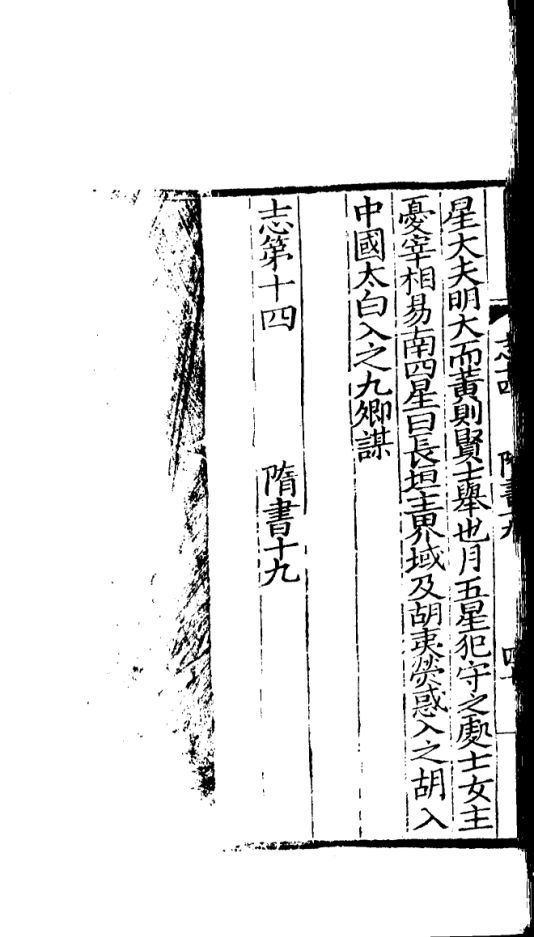 星大夫明大而黃則賢士舉也月五星犯守之處士女主
憂宰相易南四星曰長垣主界域及胡夷熒惑入之胡入
中國太白入之九卿謀
志第十四 隋書十九